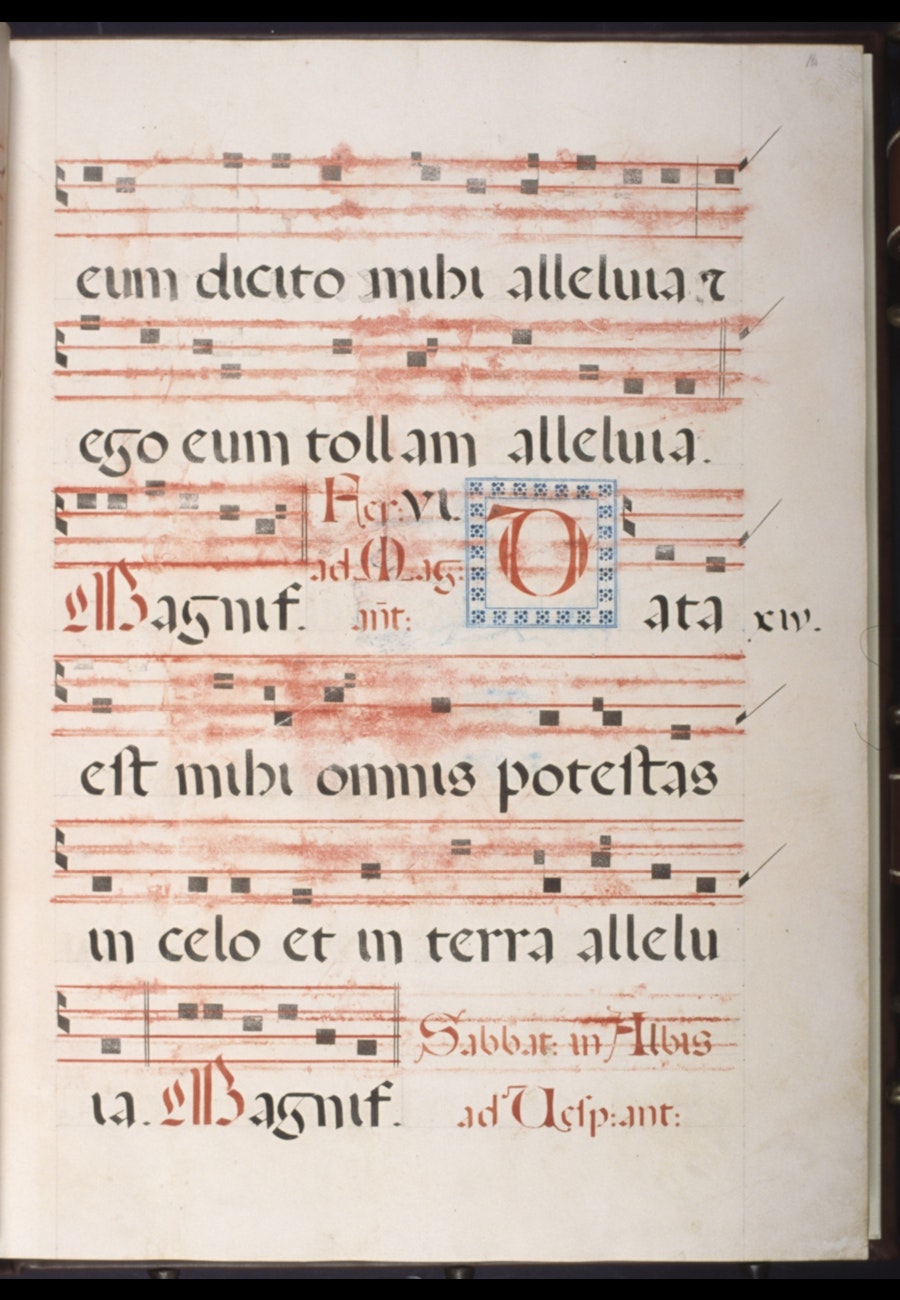 eum dicito mihi alleluia ⁊
ego eum tollam alleluia.
Fer: VI.
ad Mag:
Magnif. añt: Data xiv.
eſt mihi omnis poteſtas
in celo et in terra allelu
Sabbat: in Albis
ia. Magnif. ad Veſp: ant: